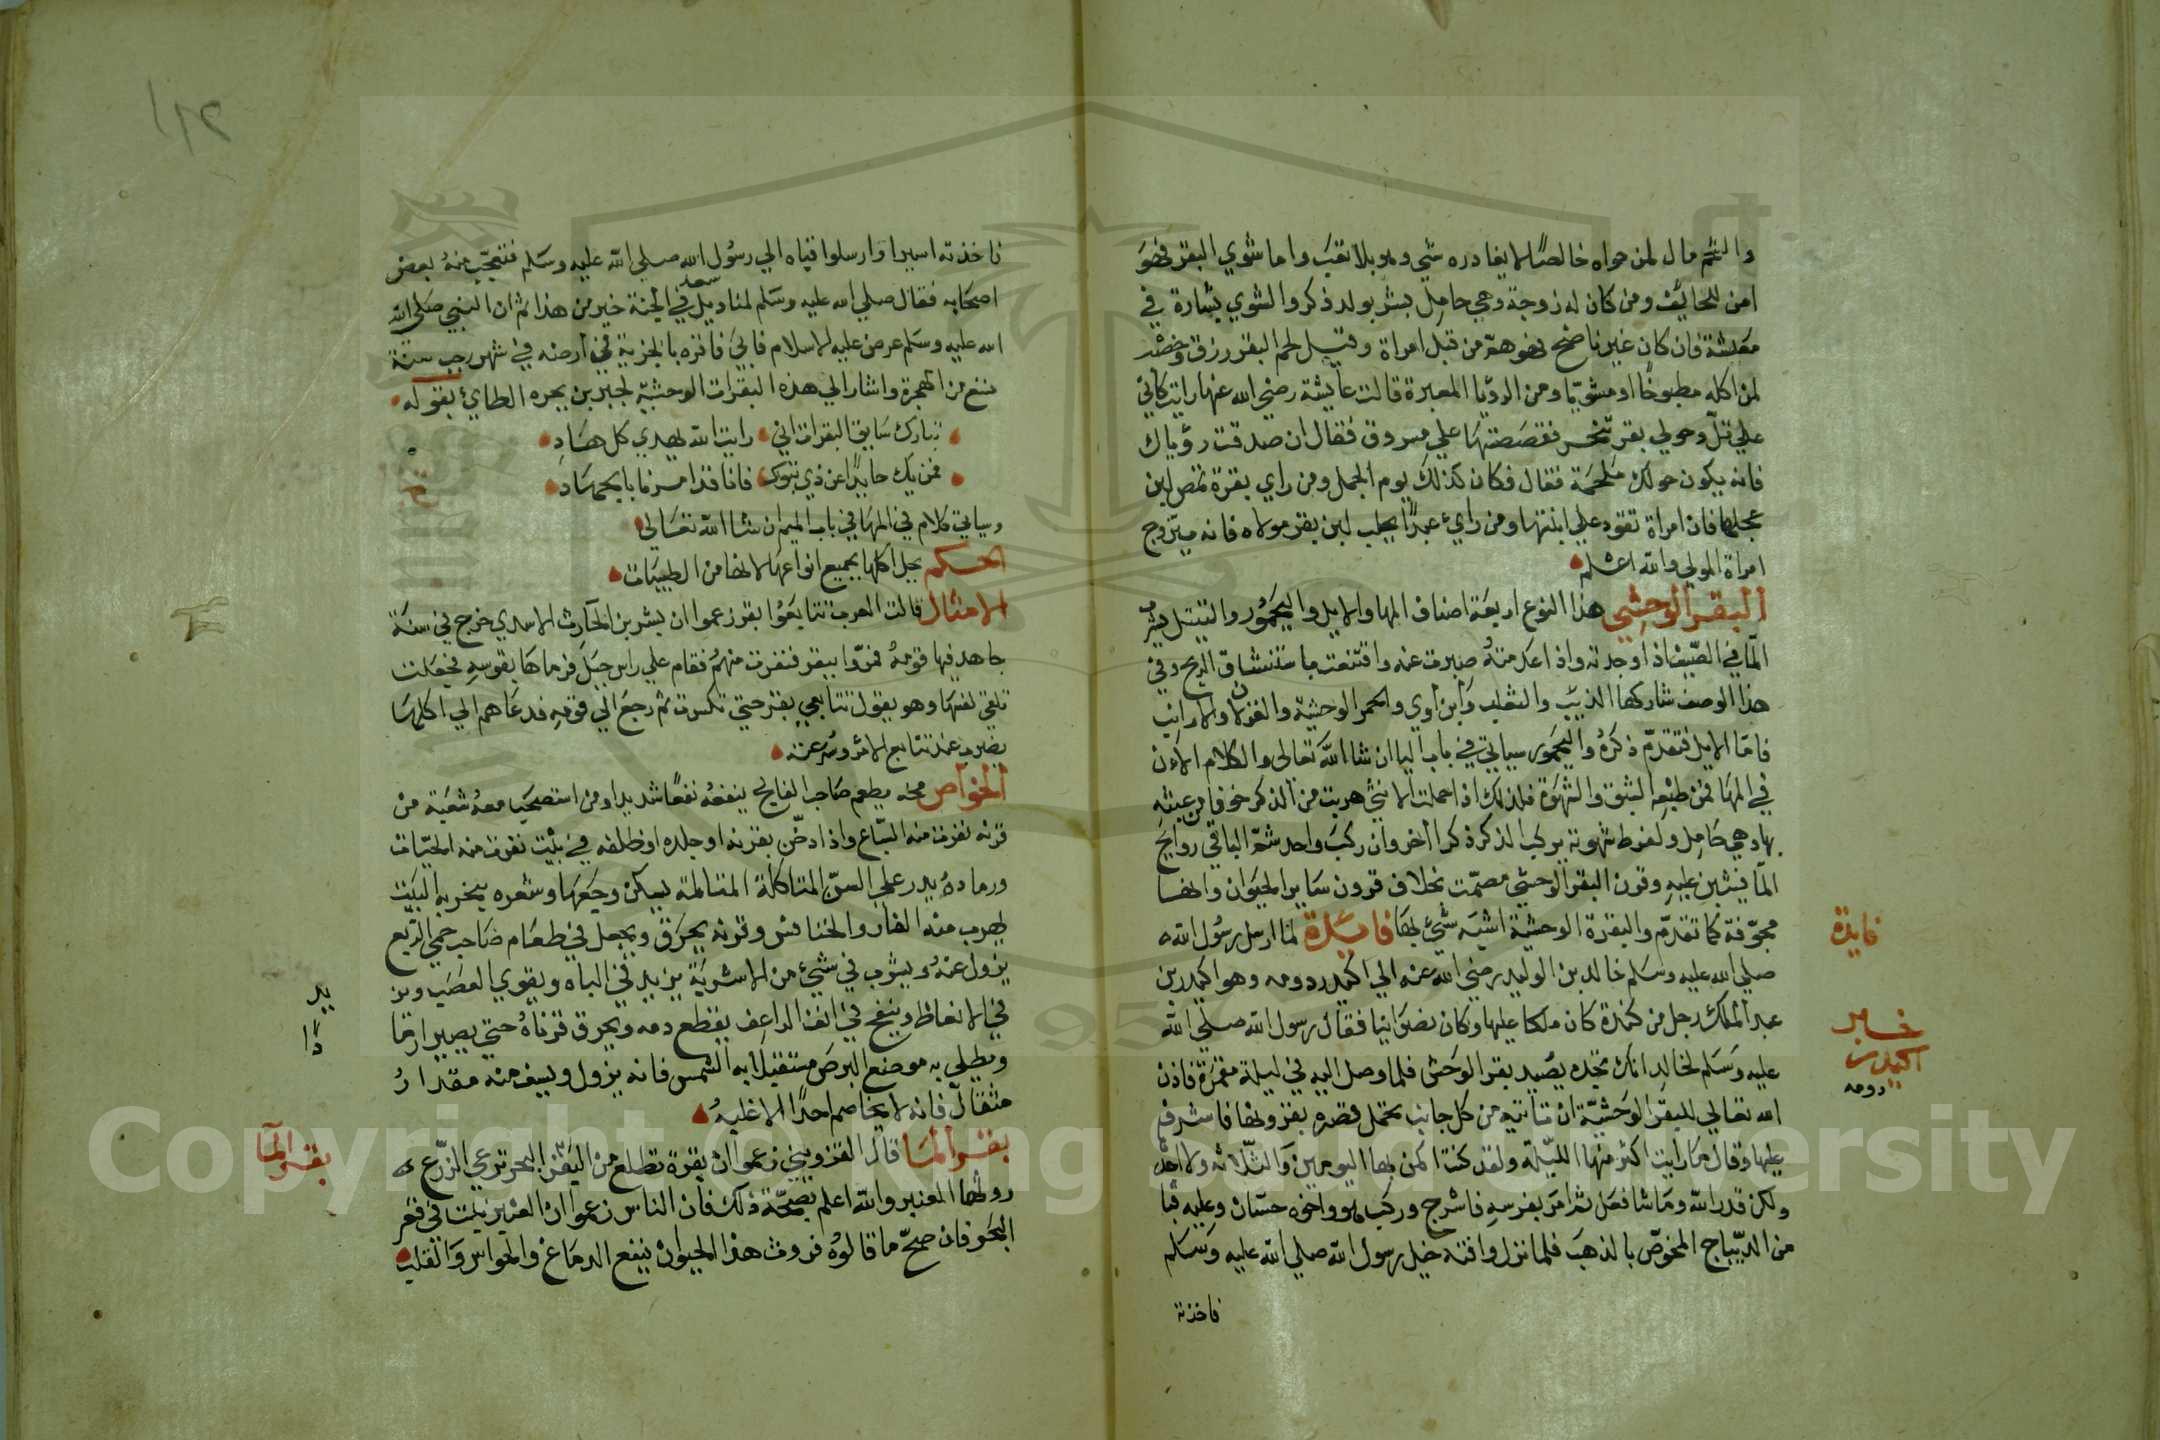 والشحم مال لمن حواه خالصًا لا يغادره شي وهو بلا تعب واما شوي البقر فهو
امن للخايف ومن كان له زوجة وهي حامل بشر بولد ذكر والشوي بشارة في
معيشة فان كان غير ناضج فهو هم من قبل امراة وقيل لحم البقر رزق وخصب
لمن اكله مطبوخًا او مشويّا ومن الرؤيا المعبرة قالت عايشة رضي الله عنها رايت كاني
علي تلّ وحولي بقر تنحر فقصصتها علي مسروق فقال ان صدقت رؤياك
فانه يكون حولك ملحمة فقال فكان كذلك يوم الجمل ومن راي بقرة تمص لبن
عجلها فان امراة تقود علي ابنتها ومن راي عبدًا يحلب لبن بقر مولاه فانه يتزوج
امراة المولي والله اعلم
البقر الوحشي هذا النوع اربعة اصناف المها والايل واليحمور والثيتل يشرب
المآ في الصّيف اذا وجدته واذا عدمته صبرت عنه واقتنعت باستنشاق الريح وفي
هذا الوصف شاركها الذيب والثعلب وابن اوي والحمر الوحشية والغزلان والارانب
فامّا الايل فتقدّم ذكره واليحمور سياتي في باب اليا ان شا الله تعالى والكلام الان
في المها فمن طبعه الشبق والشهوة فلذلك اذا حملت الانثي هربت من الذكر خوفا من عبثه
بها وهي حامل ولفرط شهوته يركب الذكر ذكرا اخر وان ركب واحد شمّ الباقي روايح
المآ فيثبن عليه وقرون البقر الوحشي مصمّت بخلاف قرون ساير الحيوان وانها
مجوّفة كما تقدّم والبقرة الوحشية اشبه شيء بها فايدة لما ارسل رسول الله
صلي الله عليه وسلم خالد بن الوليد رضي الله عنه الي اكيدر دومه وهو اكيدر بن
عبد الملك رجل من كندة كان ملكا عليها وكان نصرانيا فقال رسول الله صلي الله
عليه وسلم لخالد انك تجده يصيد بقر الوحش فلما وصل اليه في ليلة مقمرة فاذن
الله تعالي للبقر الوحشيّة ان تاتيه من كل جانب قصره بقرونها فاشرف
عليها وقال ما رايت اكثر منها الليلة ولقد كنت اكمن لها اليومين والثلاثه ولا اجد
ولكن قدر الله وما شا فعل ثم امر بفرسه فاسرج وركب هو واخوه حسّان وعليه قبا
من الديباج المخوّص بالذهب فلما نزل وافته خيل رسول الله صلي الله عليه وسلم
فاخذته
فايدة
خبر
اكيدر
دومه
فاخذته اسيرا وارسلوا قباه الي رسول الله صلي الله عليه وسلم فتعجّب منه بعض
اصحابه فقال صلي الله عليه وسلم لمناديل سعد في الجنة خير من هذا ثم ان النبي صلي الله
الله عليه وسلم عرض عليه الاسلام فابي فاقره بالجزية في ارضه في شهر رجب سنة
تسع من الهجرة واشار الي هذه البقرات الوحشيّة لجبير بن بجره الطاي بقوله
تبارك سايق البقرات اني رايت الله يهدي كل هاد
فمن يك حايدًا عن ذي تبوك فانا قد امرنا بالجهاد
وسياتي كلام في المها في باب الميم ان شا الله تعالي
الحكم يحل اكلها بجميع انواعها لانها من الطيبات
الامثال قالت العرب تتابعوا بقر زعموا ان بشر بن الحارث الاسدي خرج في سنة
جاهد فيها قومه فمرّوا ببقر فنفرت منهم فقام علي راس جبل فرماها بقوسه فجعلت
تلقي نفسها وهو يقول تتابعي بقر حتي تكسرت ثم رجع الي قومه فدعاهم الي اكلها
يضرب عند تتابع الامر وسرعته
الخواص مخه يطعم صاحب الفالج ينفعه نفعًا شديدا ومن استصحب معه شعبة من
قرنه نفرت منه السّباع واذا دخّن بقرنه او جلده او ظلفه في بيت نفرت منه الحيّات
ورماده يدر علي السنّ المتاكلة المتالمة يسكن وجعها وشعره يبخر به البيت
يهرب منه الفار والخنافس وقرنه يحرق ويجعل في طعام صاحب حمي الرّبع
يزول عنه ويشرب في شيء من الاشربة يزيد في الباه ويقوي العصب ويز
في الانعاظ وينفخ في انف الراعف يقطع دمه ويحرق قرناه حتي يصير ارقا
ويطلي به موضع البرص مستقبلا به الشمس فانه يزول ويسف منه مقدار
مثقال فانه لا يخاصم احدًا الا غلبه
بقر المآ قال القزويني زعموا ان بقرة تطلع من البحر ترعي الزرع
روثها العنبر والله اعلم بصحّة ذلك فان الناس زعموا ان العنبر ينبت في قعر
البحر فان صحّ ما قالوه فروث هذا الحيوان ينفع الدماغ والحواس والقلب
يد
بقر المآ